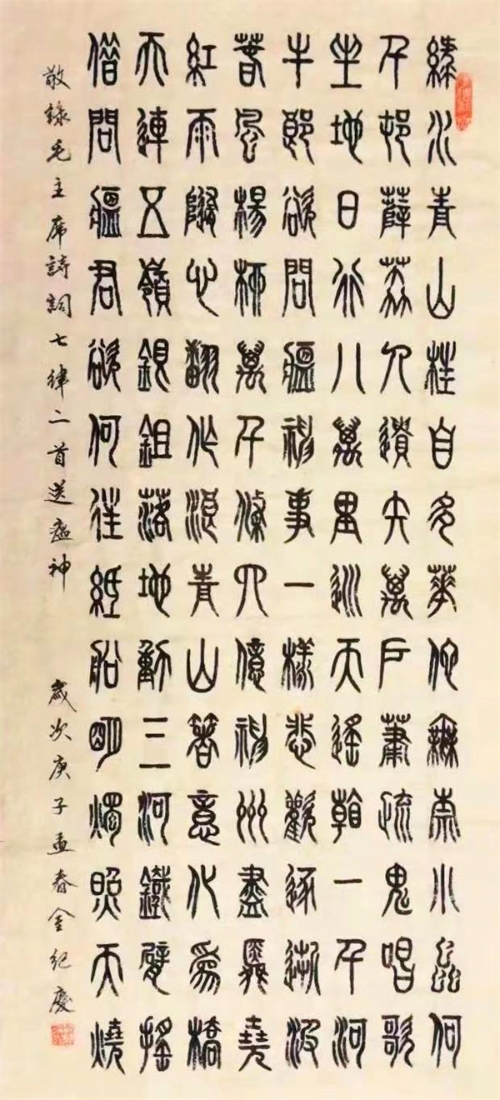 綠水青山枉自多華佗無奈小蟲何
千邨薜荔人遺矢萬戶蕭疏鬼唱歌
坐地日行八萬里巡天遙看一千河
牛郎欲問瘟神事一樣悲歡逐逝波
春風楊柳萬千條六億神州盡舜堯
紅雨隨心翻作浪青山著意化為橋
天連五嶺銀鉏落地動三河鐵臂搖
借問瘟君欲何往紙船明燭照天燒
敬錄毛主席詩詞七律二首送瘟神 歲次庚子孟春金紀慶